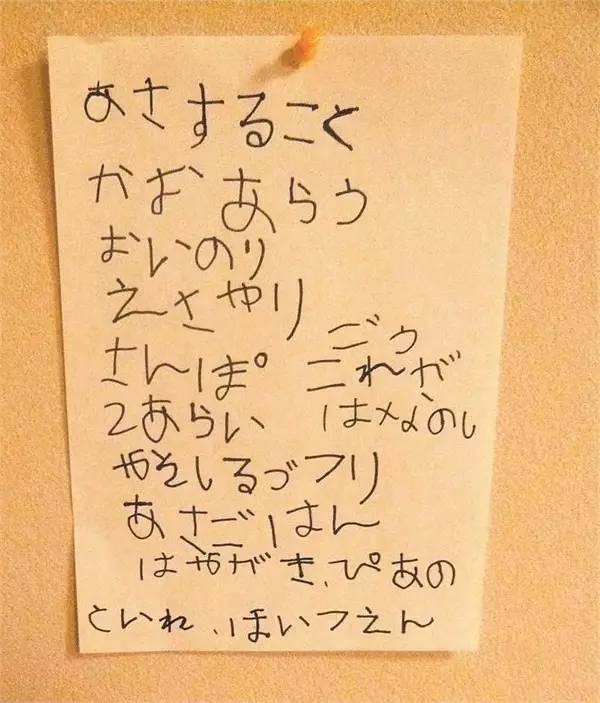 あさすること
かおあらう
おいのり
えさやり
さんぽ
2あらい
ごう
これが
はなのし
やそしるづフリ
あさごはん
はやがき、ぴあの
といれ、ほいつえん